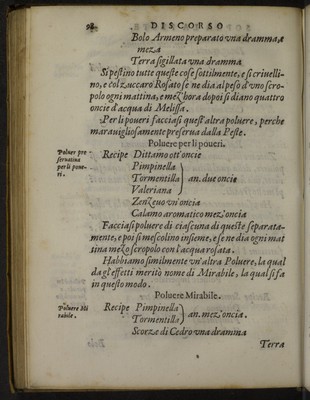 98 DISCORSO
Bolo Armeno preparato vna dramma, e
meza
Terra sigillata vna dramma
Si pestino tutte queste cose sottilmente, e si criuelli-
no, e col zuccaro Rosato se ne dia al peso d'vno scro-
polo ogni mattina, e mez'hora dopoi si diano quattro
oncie d'acqua di Melissa.
Per li poueri facciasi quest'altra poluere, perche
marauigliosamente preserua dalla Peste.
Poluere per li poueri.
Poluer pre
seruatiua
per li poue-
ri.
Recipe Dittamo ott'oncie
Pimpinella
Tormentilla } an. due oncie
Valeriana
Zenzeuo vn'oncia
Calamo aromatico mez'oncia
Facciasi poluere di ciascuna di queste separata-
mente, e poi si mescolino insieme, e se ne dia ogni mat
tina mezo scropolo con l'acqua rosata.
Habbiamo similmente vn'altra Poluere, la qual
da gl'effetti meritò nome di Mirabile, la qual si fa
in questo modo.
Poluere Mirabile.
Poluere Mi
rabile.
Recipe Pimpinella
Tormentilla } an. mez'oncia.
Scorze di Cedro vna dramma
Terra